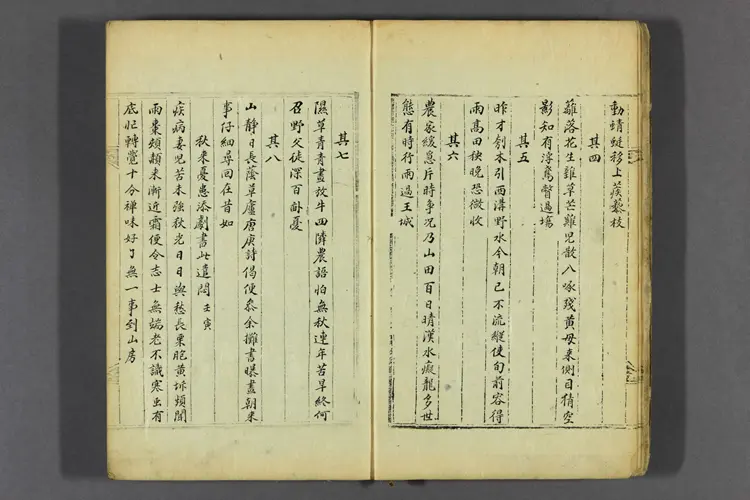 動蜻蜓移上蒺藜枝
其四
籬落花生雜草芒雞兒散入啄殘黃母來側目猜空
影知有浮鳶瞥過塲
其五
昨才刱本引西溝野水今朝已不流縱使旬前容得
雨高田秧晚恐微收
其六
農家緩急片時爭况乃山田百日晴漢水癡龍多世
態有時行雨過王城
其七
濕草青青盡放牛四隣農語怕無秋連年苦旱終何
召野父徒深百畝憂
其八
山靜日長蔭草廬唐庚詩偈便泰余攤書曝盡朝來
事仔細尋回在昔如
秋來憂患添劇書此遣悶 壬寅
疾病妻児苦未強秋光日日與愁長栗脃黃坼頻聞
雨棗頰赬來漸近霜便令志士無端老不識寒虫有
底忙轉覺十分禪味好了無一事到山房